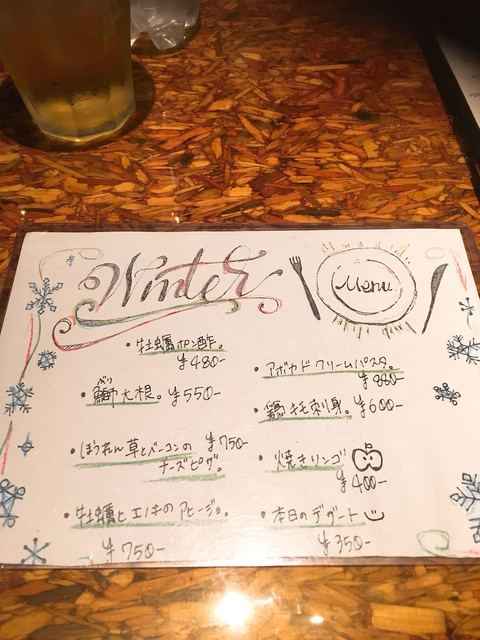 Winter
Menu
・牡蠣ポン酢。
¥480-
・鰤大根。¥550-
ブリ
・ほうれん草とベーコンの ¥750-
チーズピザ。
・牡蠣とエノキのアヒージョ。
¥750-
・アボカドクリームパスタ。
¥880-
刺身。¥600-
・焼きリンゴ
¥400-
・本日のデザート
¥350-